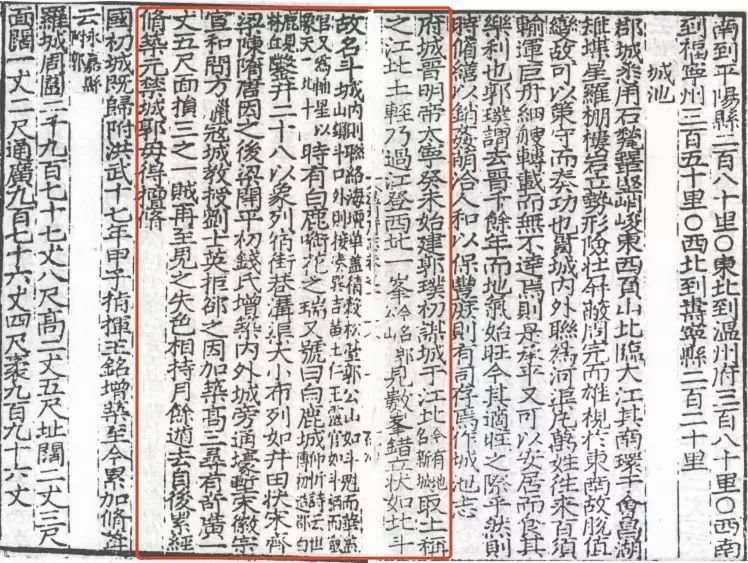 南到平陽縣二百八十里〇東北到溫州府三百八十里〇西南
到福寧州三百五十里〇西北到壽寧縣二百二十里
城池
郡城悉用石甃 東西負山北臨大江其南環于會昌湖
雉堞星羅棚樓岩立勢形險壯 而雄視於東西故脫值
故可以策守而奏功也舊城內外聯為河 萬姓往來百須
輸運巨舟 轉載而無不達焉則是 又可以安居而食其
樂利也郭璞謂去晉千餘年而地氣始旺今其適旺之際乎然則
時脩繕以銷姦萌洽人和以保豐 則有司存焉作城池志
府城晉明帝太寧癸未始建郭璞初謀城于江北 今有地名新城 取土稱
之江北土輕乃過江登西北一峯 今名郭公山 見數峯錯立狀如北斗
故名斗城 山 內則聯絡海壇華蓋積穀松臺郭公山如斗魁而華蓋 口外則接湊 吉黃土仁王 官如斗
官又為輔星以象天一北斗 時有白鹿銜花之瑞又號曰白鹿城
鑿井二十八以象列宿街巷溝渠大小布列如井田狀宋齊
梁陳隋唐因之後梁開平初錢氏增築內外城旁通壕塹宋徽宗
宣和間方臘寇城教授劉士英拒却之因加築高三尋有許廣一
丈五尺面損三之一賊再至見之失色相持月餘遁去自後累經
脩築元禁城郭毋得擅脩
國初城既歸附洪武十七年甲子指揮王銘增築至今累加脩葺
云 永嘉縣附郭
羅城周圍二千九百七十七丈八尺高二丈五尺址闊二丈三尺
面闊一丈二尺通廣九百七十六丈四尺袤九百九十六丈